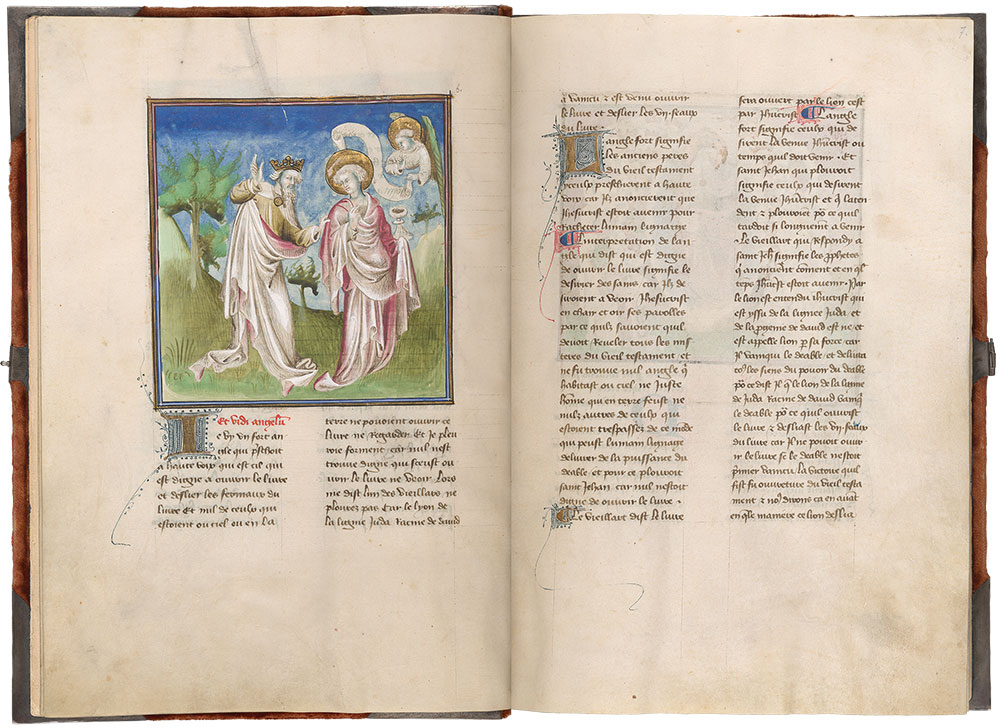 Et vidi angelum
Je vy un fort an
gle qui preschoit
a haulte voix qui est cil qui
est digne a ouvrir le livre
et deslier les fermaux du
livre Et nul de ceulx qui
estoient ou ciel ou en la
terre ne pouoient ouvrir ce
livre ne Regarder Et je plou
roie forment car nul nest
trouve digne qui sceust ou
vrir le livre ne veoir Lors
me dist lun des vieillars ne
plourez pas Car le lyon de
la lignie Juda Racine de david
a vaincu & est venu ouvrir
le livre et deslier les vij seaux
du livre
Langle fort signifie
les anciens peres
du vieil testament
& ceulx prescherent a haute
voix car Ilz anoncerent que
Jhesucrist estoit avenir pour
Racheter lumain lignaige
Linterpretation de lan
gle qui dist qui est digne
de ouvrir le livre signifie le
desirier des sains car Ilz de
siroient a veoir Jhesucrist
en chair et oir ses parolles
par ce quilz savoient quil
devoit Reveler tous les mis
teres du vieil testament et
ne fu trouve nul angle qui
habitast ou ciel ne Juste
home qui en terre feust ne
nulz autres de ceulx qui
estoient trespassez de ce mode
qui peust lumain lignage
delivrer de la puissance du
deable et pour ce plouroit
saint Jehan car nul nestoit
digne de ouvrir le livre
Le vieillart dist le livre
sera ouvert par le lion cest
par Jhucrist Langle
fort signifie ceulx qui de
sirent la venue Jhucrist ou
temps quil doit venir Et
saint Jehan qui plouroit
signifie ceulx qui desirent
la venue Jhucrist et q laten
dent & plouroit po ce quil
tardoit si longuemt a venir
Le vieillart qui Respondy a
saint Jeh signifie les pphetes
q anoncient coment et en ql
temps Jhucrist estoit avenir Par
le lion est entendu Jhucrist qui
est yssu de la lignee Juda et
de la Racine de david est ne et
est appelle lion p sa force car
Il vainqui le deable et delivra
to9 les siens du povoir du deable
po ce dist Il q le lion de la ligne
de Juda Racine de david vainq
le deable po ce quil ouvrist
le livre & desliast les vij seaux
du livre car Il ne povoit ouv
rir le livre se le deable nestoit
pmier vaincu La victoire quil
fist fu ouverture du vieil testa
ment & no9 dirons ca en avat
en qle maniere ce lion deslia